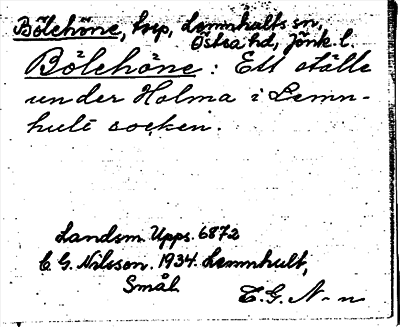 Bölehöne, torp, Lemnhults sn,
Östra hd, Jönk. l.
Bölehöne: Ett ställe
under Holma i Lemn-
hult socken.
Landsm. Upps. 6872
E. G. Nilsson. 1934. Lemnhult,
Smål.
E. G. N-n